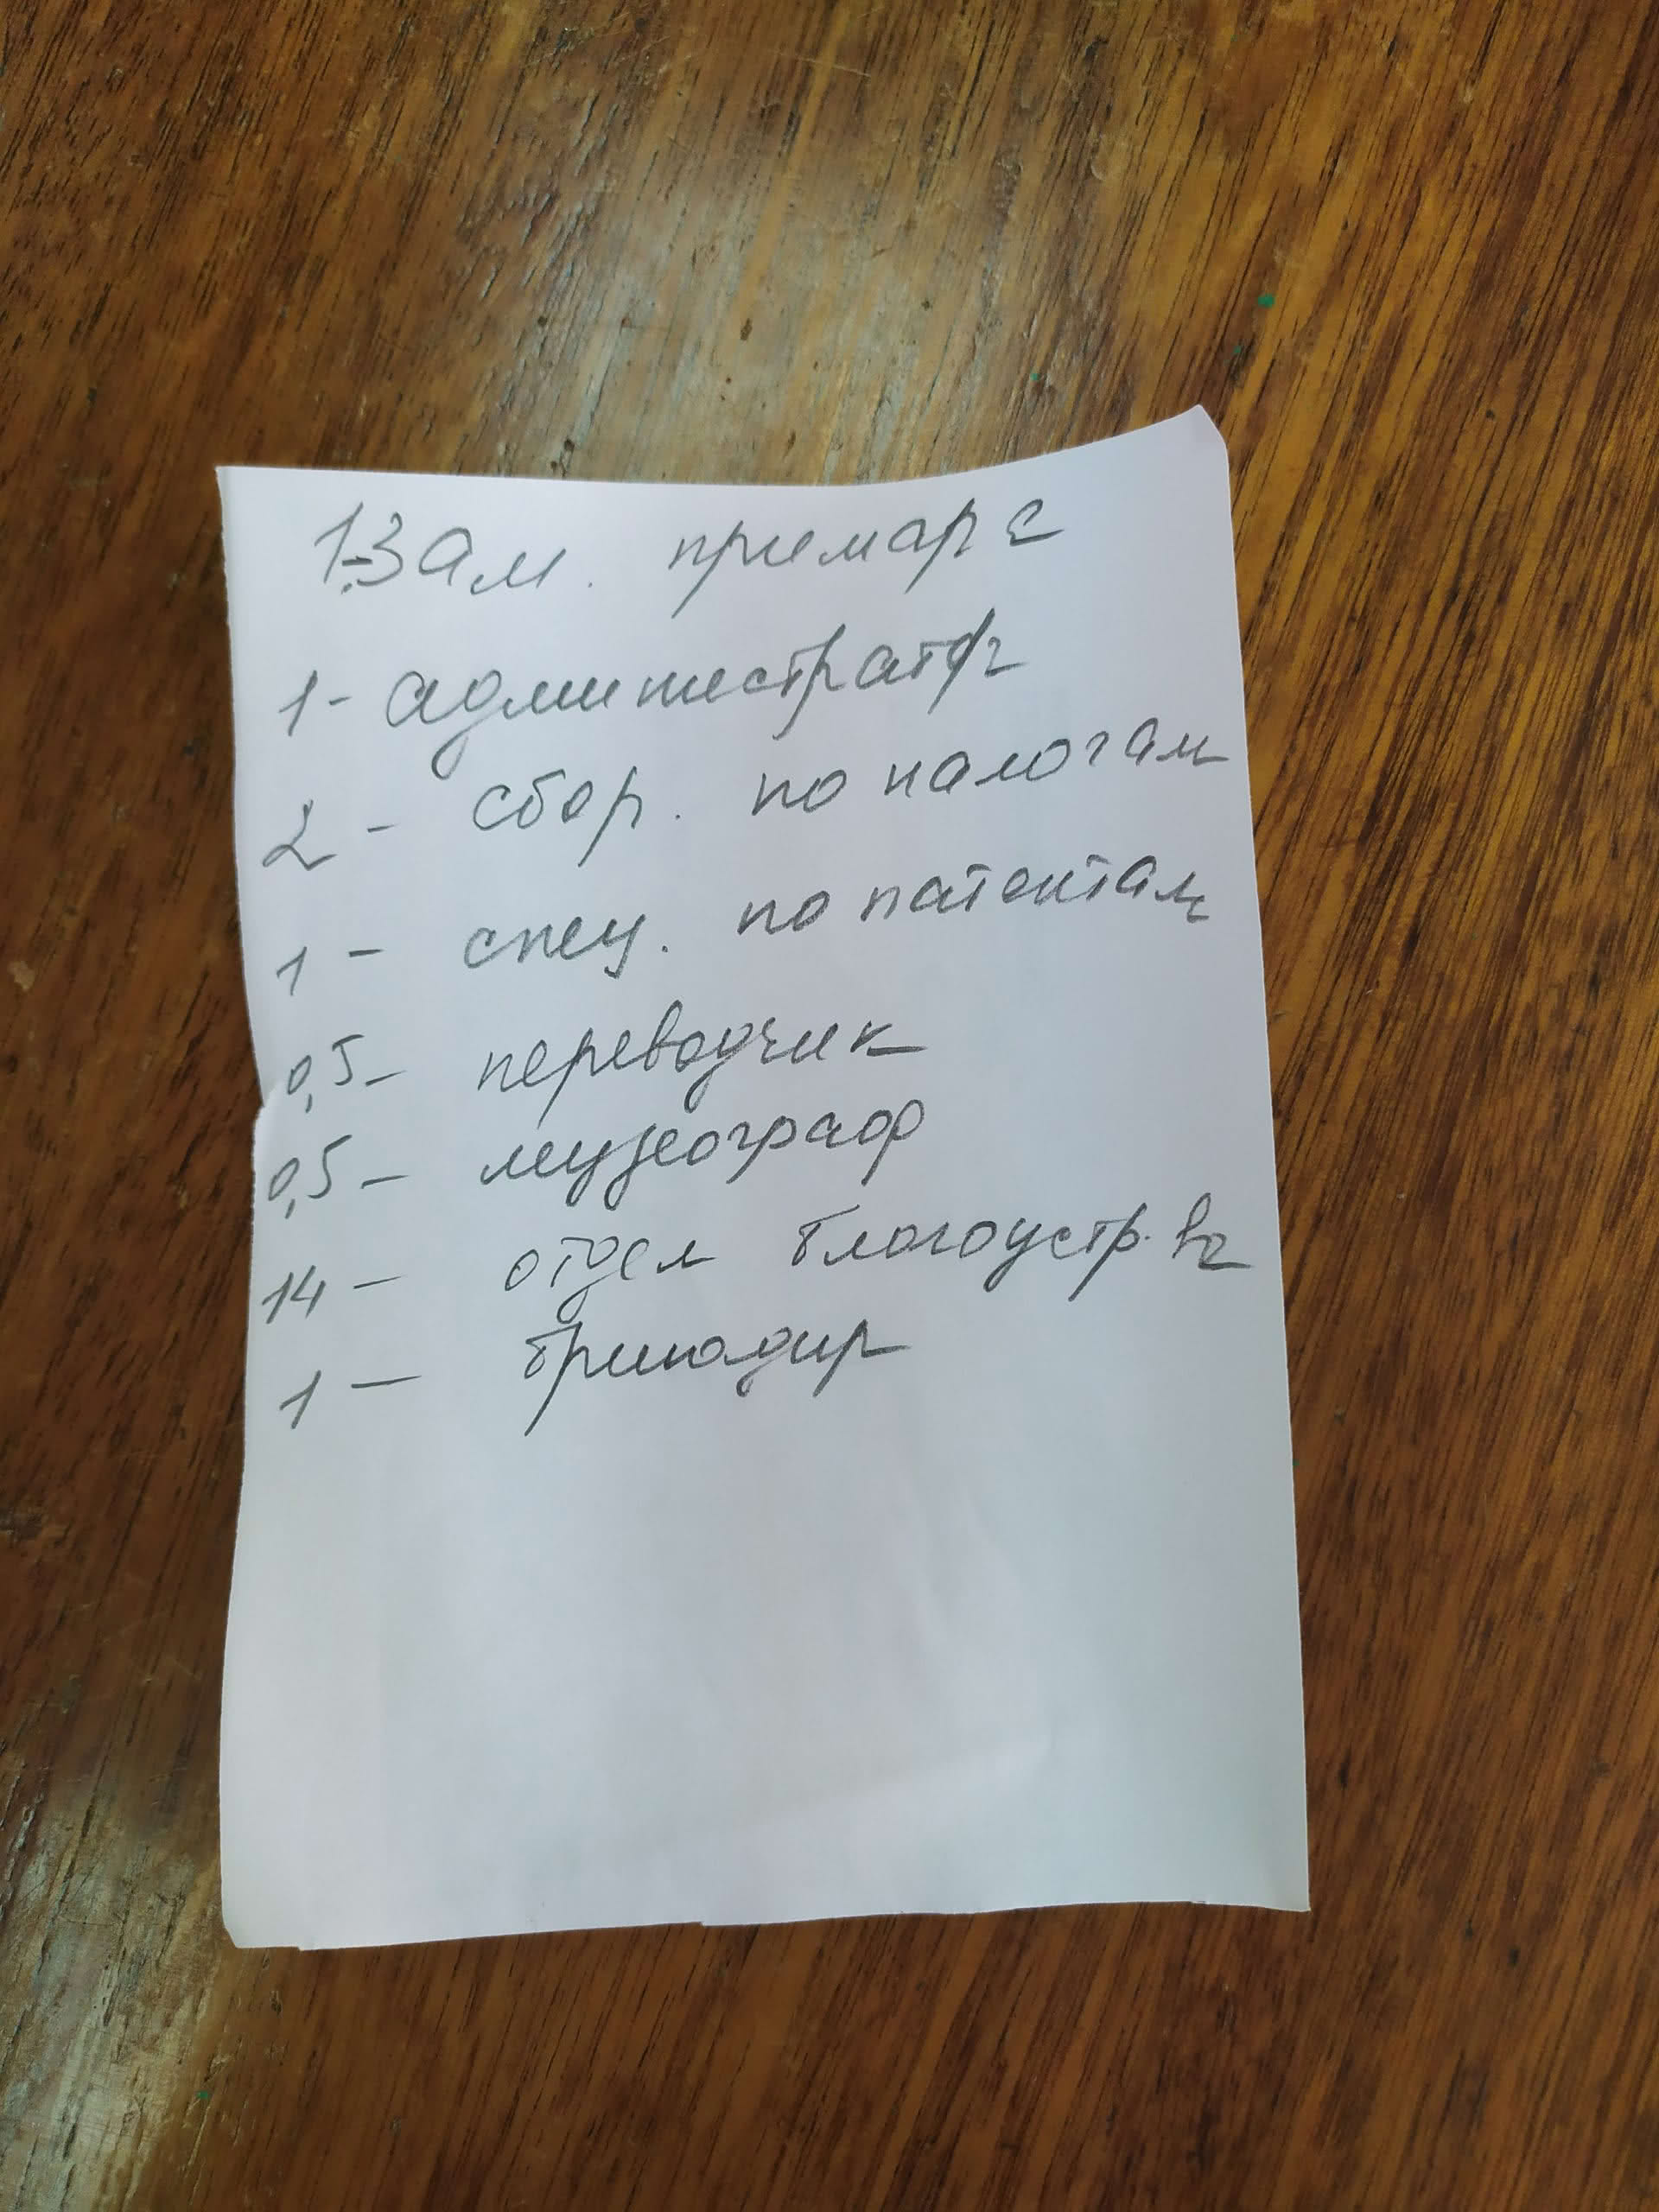 1-Зам. примара
1- администратор
2 - сбор. по налогам
1 - спец. по патентам
0,5 - переводчик
0,5 - музеограф
14 - отдел благоустр. ва
1 - бригадир